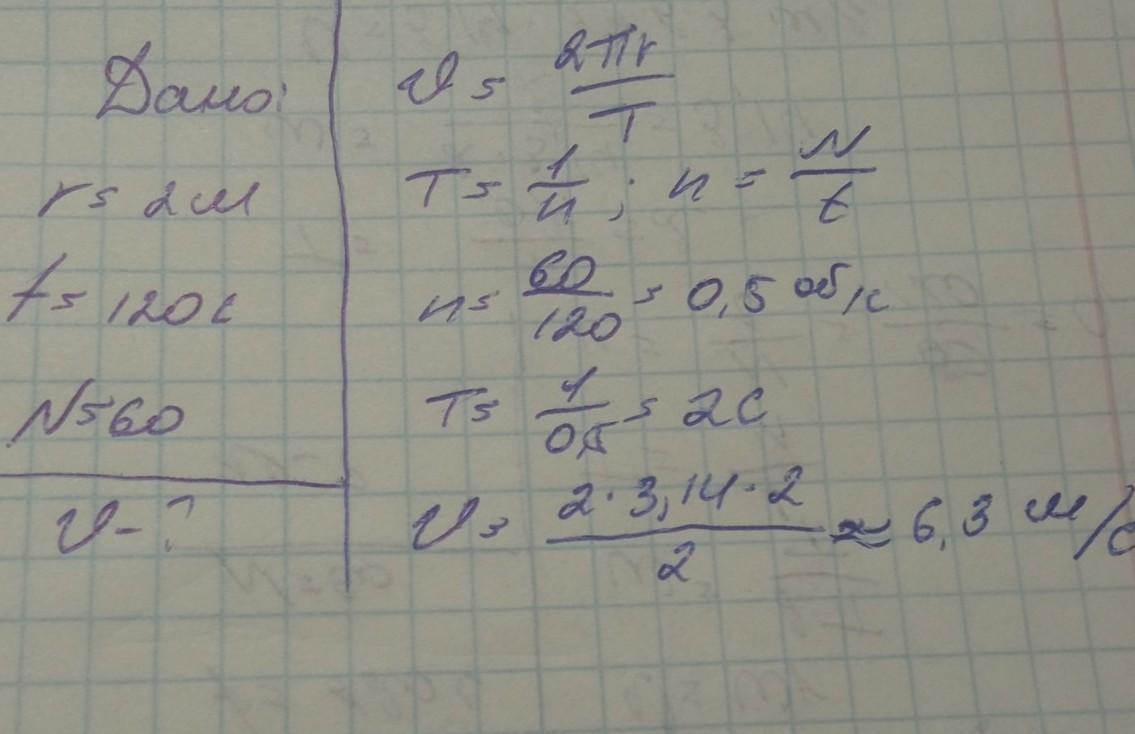 Дано:
r = 2м
t = 120с
N = 60
υ - ?
υ = 2πr / T
T = 1/n ; n = N/t
n = 60/120 = 0,5 об/с
T = 1/0,5 = 2с
υ = 2·3,14·2 / 2 ≈ 6,3 м/с